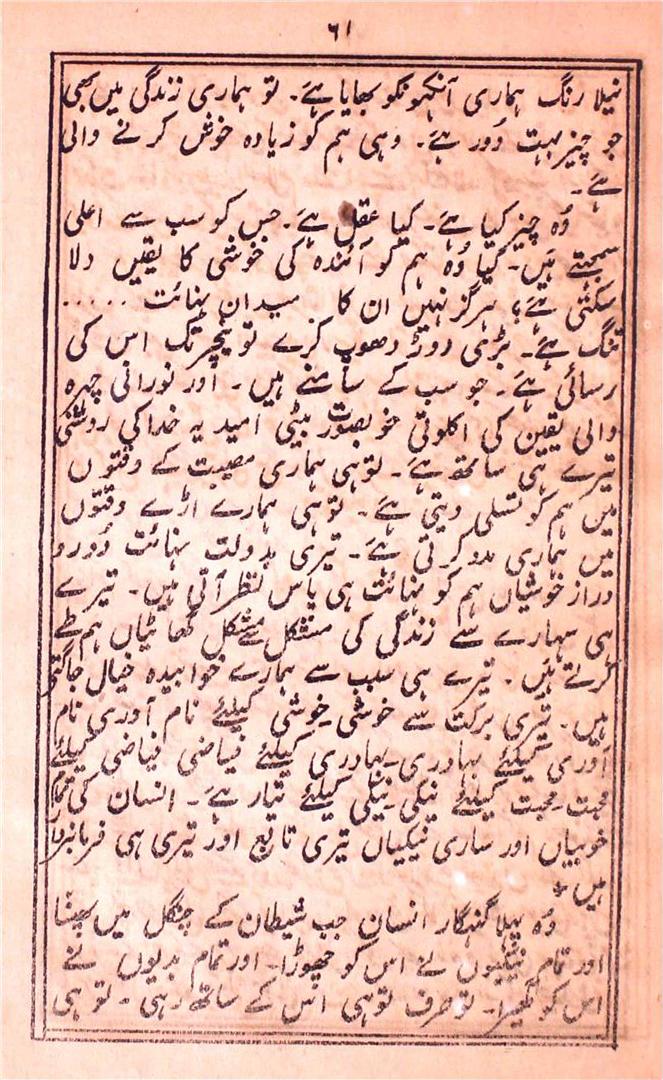 ۶۱
نیلا رنگ ہماری آنکہونکو بھایا ہے۔ تو ہماری زندگی میں بھی
جو چیز بہت دُور ہے۔ وہی ہم کو زیادہ خوش کرنے والی
ہے۔
وُہ چیز کیا ہے۔ کیا عقل ہے۔ جس کو سب سے اعلی
سمجتے ہیں۔ کیا وُہ ہم کو آئندہ کی خوشی کا یقیں دلا
سکتی ہے؟ ہرگز نہیں ان کا میدان نہائت .....
تنگ ہے۔ بڑھی دوڑ دھوپ کرے تو نیچر تک اس کی
رسائی ہے۔ جو سب کے سامنے ہیں۔ اور نورانی چہرہ
والی یقین کی اکلوتی خوبصورت بیٹی امید یہ خدا کی روشنی
تیرے ہی ساتھ ہے۔ تو ہی ہماری مصیبت کے وقتوں
میں ہم کو تسلی دیتی ہے۔ تو ہی ہمارے اڑے وقتوں
میں ہماری مدد کرتی ہے۔ تیری بدولت نہائت دُور و
دراز خوشیاں ہم کو نہائت ہی پاس نظر آتی ہیں۔ تیرے
ہی سہارے سے زندگی کی مشکل سے مشکل گھاٹیاں ہم طے
کرتے ہیں۔ تیرے ہی سبب سے ہمارے خوابیدہ خیال جاگتے
ہیں۔ تیری برکت سے خوشی۔ خوشی کیلئے نام آوری نام
آوری کیلئے بہادری۔ بہادری کیلئے فیاضی فیاضی کیلئے
محبت۔ محبت کیلئے نیکی۔ نیکی کیلئے تیار ہے۔ انسان کی تمام
خوبیاں اور ساری نیکیاں تیری تابع اور تیری ہی فرمانبردار
ہیں*
وُہ پہلا گنہگار انسان جب شیطان کے چنگل میں پھنسا
اور تمام نیکیوں نے اس کو چھوڑا۔ اور تمام بدیوں نے
اس کو گھیرا۔ تو صرف تو ہی اس کے ساتھ رہی۔ تو ہی